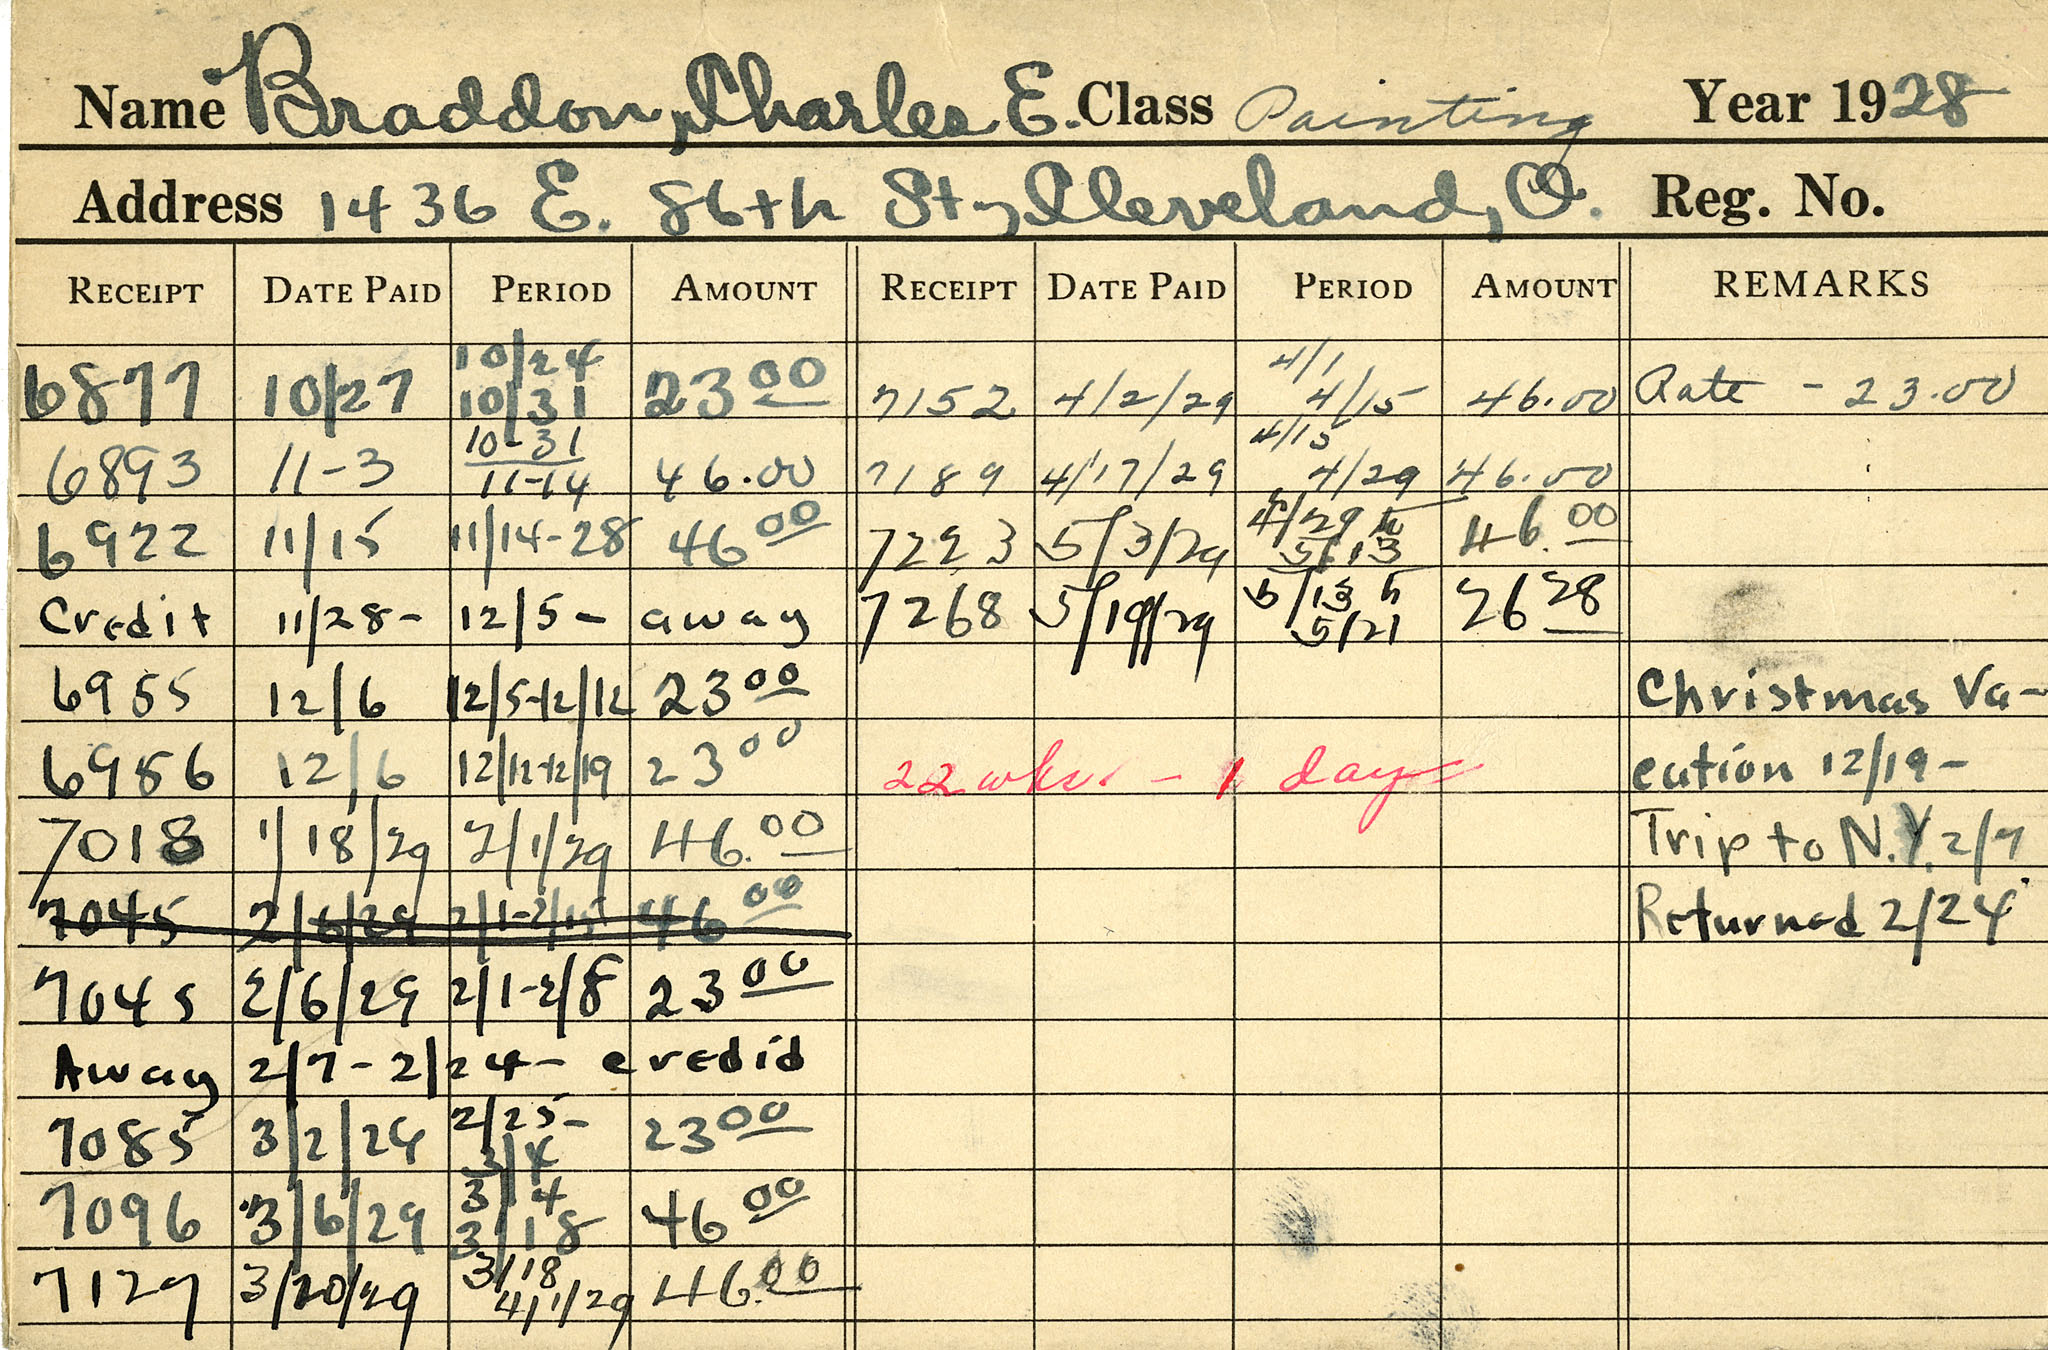 Name Braddon, Charles E. Class Painting Year 1928
Address 1436 E. 86th St., Cleveland, O. Reg. No.
RECEIPT DATE PAID PERIOD AMOUNT RECEIPT DATE PAID PERIOD AMOUNT REMARKS
6877 10/27 10/24 10/31 23.00 7152 4/2/29 4/1 4/15 46.00 Rate - 23.00
6893 11-3 10-31 11-14 46.00 7189 4/17/29 4/15 4/29 46.00
6922 11/15 11/14-28 46 00 7223 5/3/29 4/29 to 5/13 46.00
Credit 11/28- 12/5- away 7268 5/19/29 5/13 to 5/21 26 28
6955 12/6 12/5-12/12 23 00 Christmas Va-
6986 12/6 12/12-12/19 23 00 22 wks. - 1 day cation 12/19-
7018 1/18/29 2/1/29 46.00 Trip to N.Y. 2/7
7045 2/6/29 2/1-2/15 46 00 Returned 2/24
7045 2/6/29 2/1-2/8 23 00
Away 2/7-2/24- credid
7085 3/2/29 2/25- 3/4 23 00
7096 3/6/29 3/4 3/18 46 00
7129 3/20/29 3/18 4/1/29 46.00